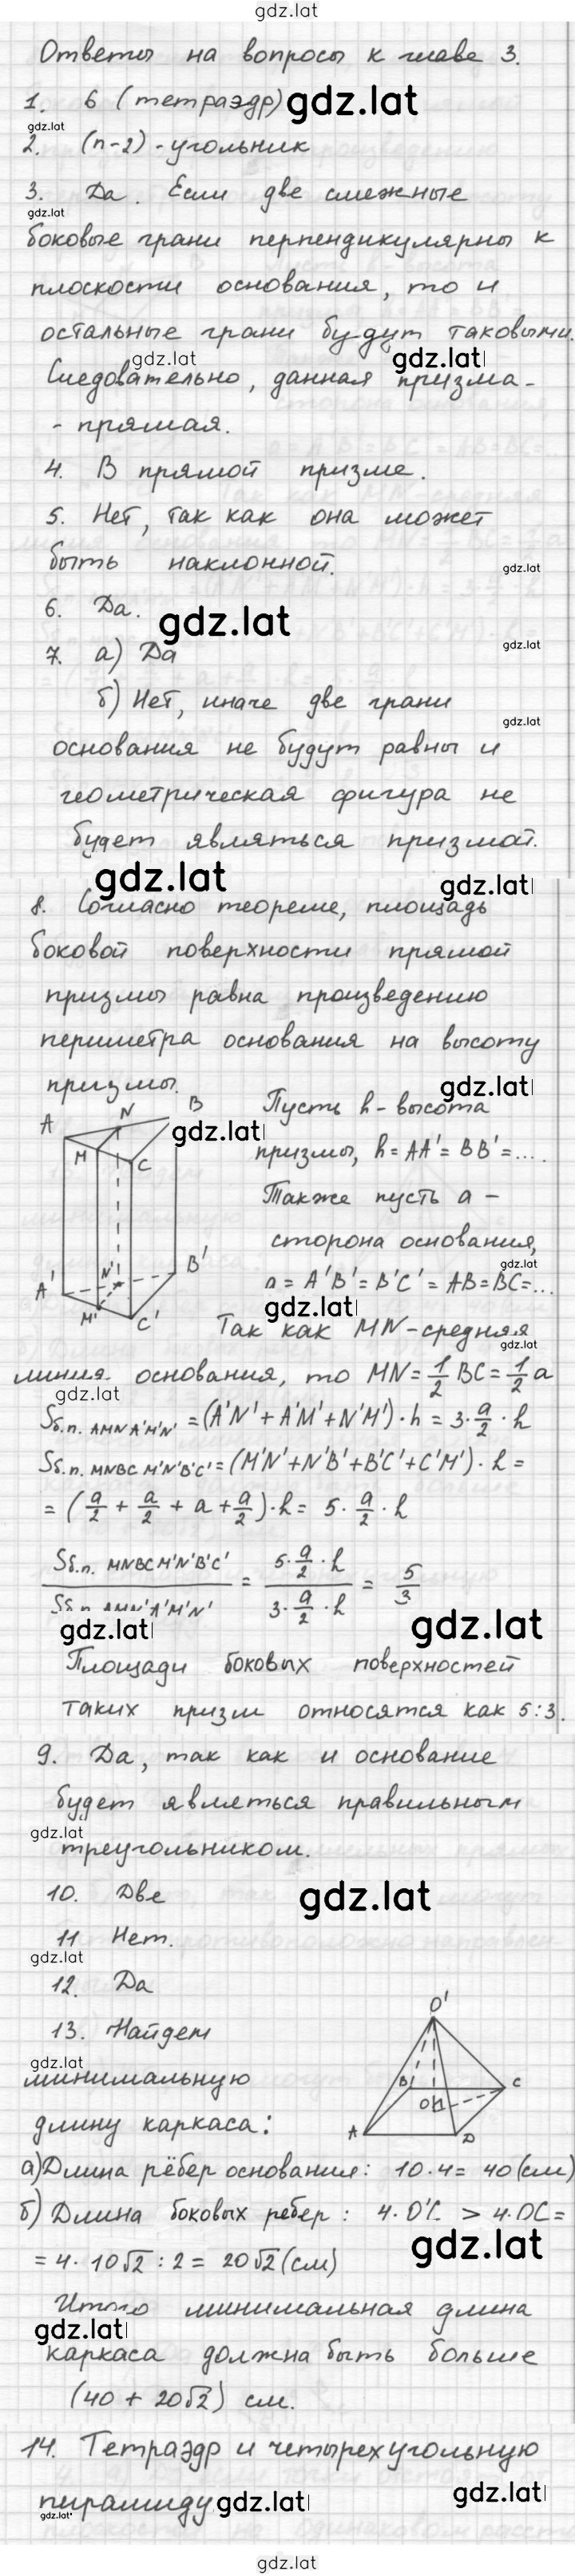 gdz.lat
Ответы на вопросы к главе 3.
1. 6 (тетраэдр) gdz.lat
gdz.lat
2. (n-2)-угольник
3. Да. Если две смежные
gdz.lat
боковые грани перпендикулярны к
плоскости основания, то и
остальные грани будут таковыми.
gdz.lat gdz.lat
Следовательно, данная призма -
- прямая.
4. В прямой призме.
5. Нет, так как она может
быть наклонной.
gdz.lat
6. Да. gdz.lat
gdz.lat
7. а) Да
б) Нет, иначе две грани
gdz.lat
основания не будут равны и
геометрическая фигура не
будет являться призмой.
gdz.lat gdz.lat
8. Согласно теореме, площадь
боковой поверхности прямой
призмы равна произведению
периметра основания на высоту
призмы. gdz.lat
A N B
M C
A' N' B'
M' C'
gdz.lat
Пусть h - высота
призмы, h = AA' = BB' = ...
Также пусть a -
сторона основания,
gdz.lat
a = A'B' = B'C' = AB = BC = ...
gdz.lat
Так как MN - средняя
gdz.lat
линия основания, то MN = 1/2 BC = 1/2 a
gdz.lat
Sб.п. AMNA'M'N' = (A'N' + A'M' + N'M') · h = 3 · a/2 · h
Sб.п. MNBCM'N'B'C' = (M'N' + N'B' + B'C' + C'M') · h =
= (a/2 + a/2 + a + a/2) · h = 5 · a/2 · h
Sб.п. MNBCM'N'B'C' / Sб.п. AMN'A'M'N' = 5 · a/2 · h / 3 · a/2 · h = 5/3
gdz.lat gdz.lat
Площади боковых поверхностей
таких призм относятся как 5:3.
9. Да, так как и основание
будет являеться правильным
gdz.lat
треугольником.
10. Две gdz.lat
11 Нет.
gdz.lat
12. Да
13. Найдем
gdz.lat
минимальную
длину каркаса:
O'
B C
O
A D
а) Длина рёбер основания: 10·4 = 40 (см)
б) Длина боковых ребер: 4·O'C > 4·OC =
gdz.lat
= 4 · 10√2 : 2 = 20√2 (см)
Итого минимальная длина
gdz.lat
каркаса должна быть больше
(40 + 20√2) см.
14. Тетраэдр и четырехугольную
gdz.lat
пирамиду gdz.lat
gdz.lat
gdz.lat